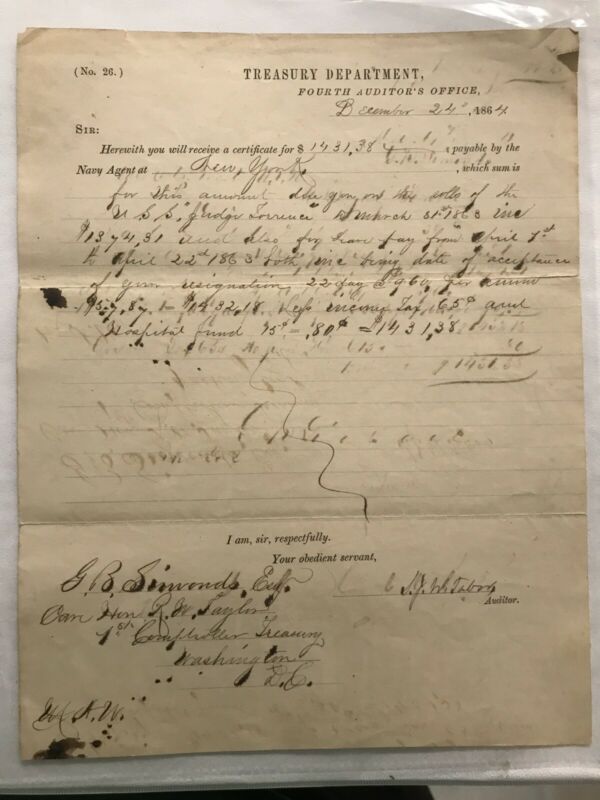 (No. 26.)
TREASURY DEPARTMENT,
FOURTH AUDITOR'S OFFICE,
December 24th, 1864
SIR:
Herewith you will receive a certificate for $ 1431,38 payable by the
Navy Agent at New York, which sum is
for this amount due you on the rolls of the
U.S.S. "Judge Torrence" to March 31st 1863 inc
$1374,31 and also for leave pay from April 1st
to April 22d 1863 both inc being date of acceptance
of your resignation, 22 day $960, per annum
$57,87, = $1432,18. Less income Tax 65c and
Hospital fund 15c = ,80c = $1431,38
$1431.38
I am, sir, respectfully.
Your obedient servant,
G. B. Simonds, Esq.
Auditor.
Care Hon R. W. Taylor
1st Comptroller Treasury
Washington
D.C.